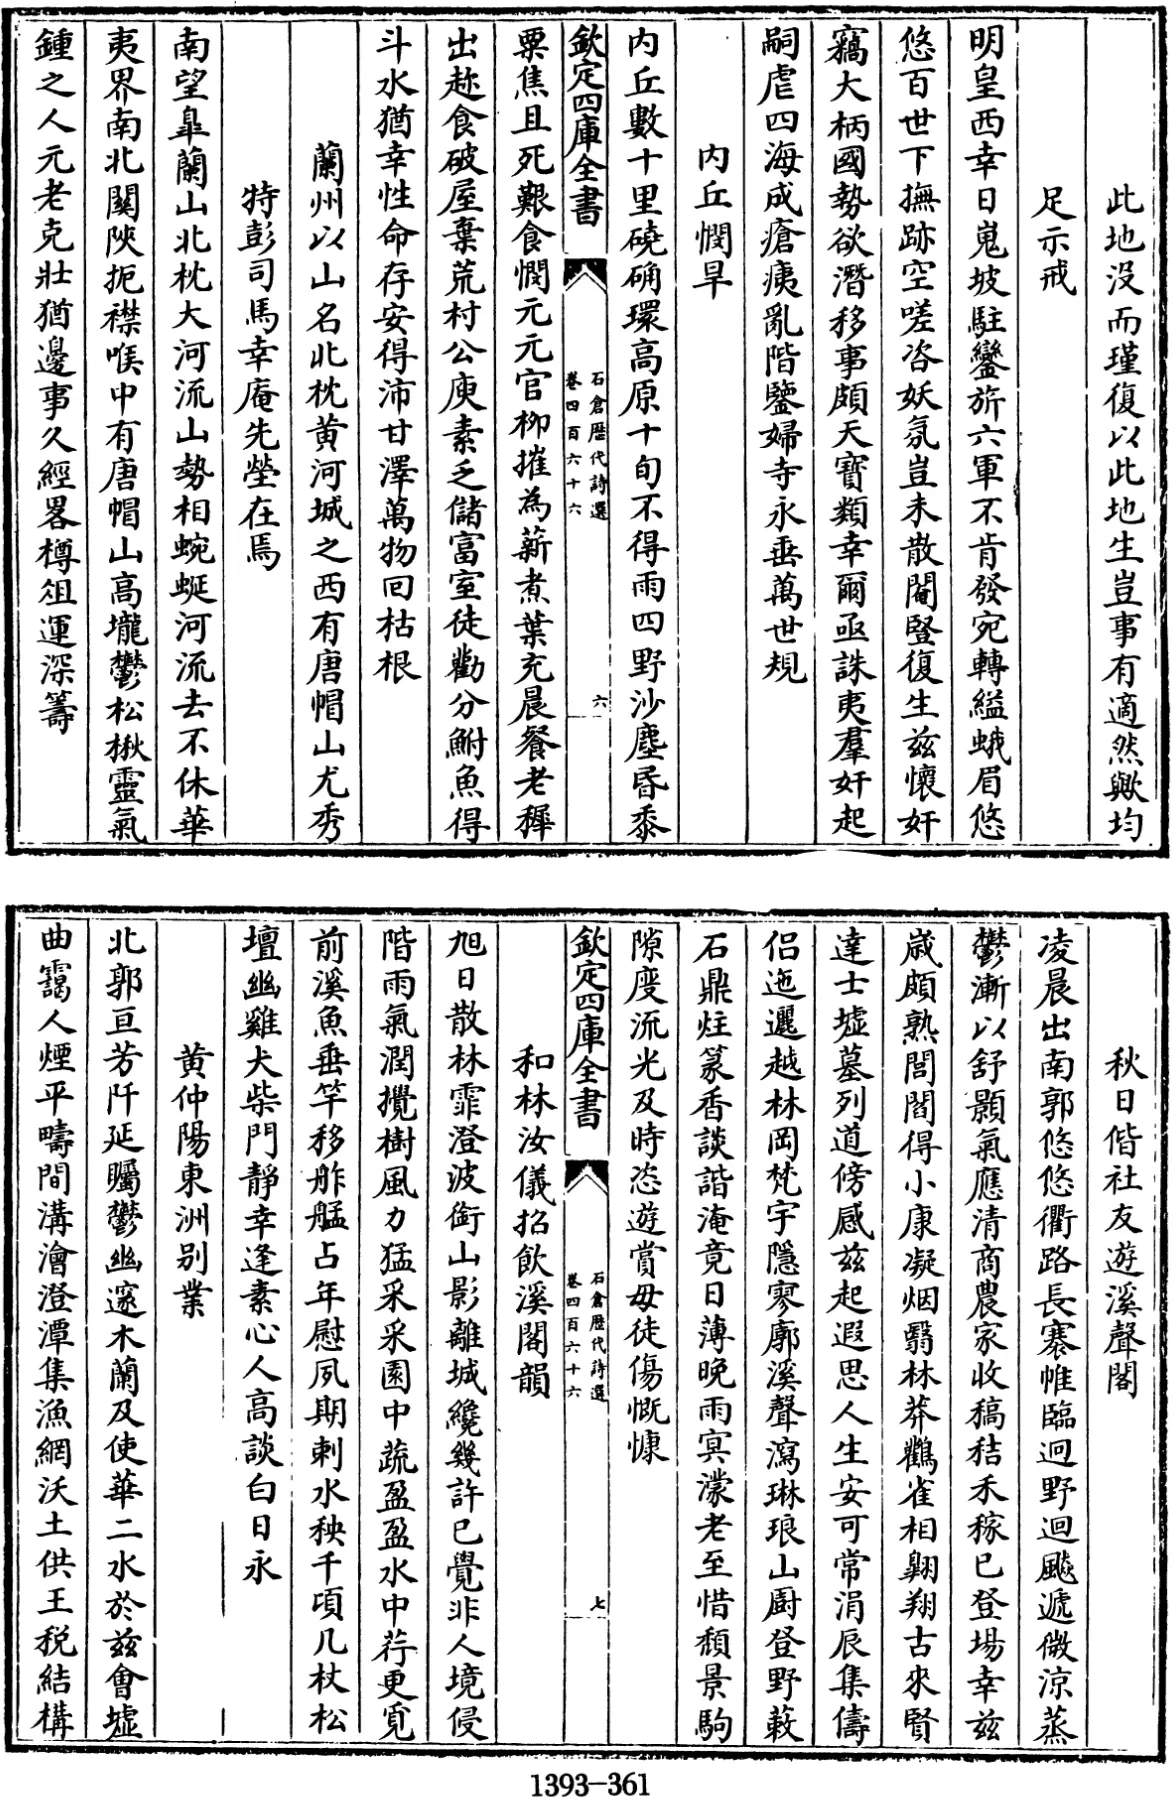 此地没而瑾復以此地生豈事有適然歟均
足示戒
明皇西幸日嵬坡駐鑾旂六軍不肯發宛轉縊蛾眉悠
悠百世下撫跡空嗟咨妖氛豈未散閹豎復生兹懷奸
竊大柄國勢欲潛移事頗天寳類幸爾亟誅夷羣奸起
嗣虐四海成瘡痍亂階鑒婦寺永垂萬世規
内丘憫旱
内丘數十里磽确環高原十旬不得雨四野沙塵昏黍
欽定四庫全書
石倉歷代詩選
卷四百六十六
六
粟焦且死艱食憫元元官柳摧為薪煮葉充晨餐老穉
出趂食破屋棄荒村公庾素乏儲富室徒勸分鮒魚得
斗水猶幸性命存安得沛甘澤萬物回枯根
蘭州以山名北枕黄河城之西有唐帽山尤秀
特彭司馬幸庵先塋在焉
南望臯蘭山北枕大河流山勢相蜿蜒河流去不休華
夷界南北關陜扼襟喉中有唐帽山高壠鬱松楸靈氣
鍾之人元老克壯猶邊事久經畧樽俎運深籌
秋日偕社友遊溪聲閣
凌晨出南郭悠悠衢路長褰帷臨迥野迴飈遞微涼蒸
鬱漸以舒顥氣應清商農家收稿秸禾稼已登場幸兹
歲頗熟閭閻得小康凝烟翳林莽鸛雀相翺翔古來賢
達士墟墓列道傍感兹起遐思人生安可常涓辰集儔
侣迤邐越林岡梵宇隱寥廓溪聲瀉琳琅山厨登野蔌
石鼎炷篆香談諧淹竟日薄晚雨冥濛老至惜頽景駒
隙度流光及時恣遊賞毋徒傷慨慷
欽定四庫全書
石倉歷代詩選
卷四百六十六
七
和林汝儀招飲溪閣韻
旭日散林霏澄波銜山影離城纔幾許已覺非人境侵
階雨氣潤攪樹風力猛采采園中蔬盈盈水中荇更覓
前溪魚垂竿移舴艋占年慰夙期刺水秧千頃几杖松
壇幽雞犬柴門靜幸逢素心人高談白日永
黄仲陽東洲别業
北郭亘芳阡延矚鬱幽邃木蘭及使華二水於兹會墟
曲靄人煙平疇間溝澮澄潭集漁網沃土供王税結構
1393-361